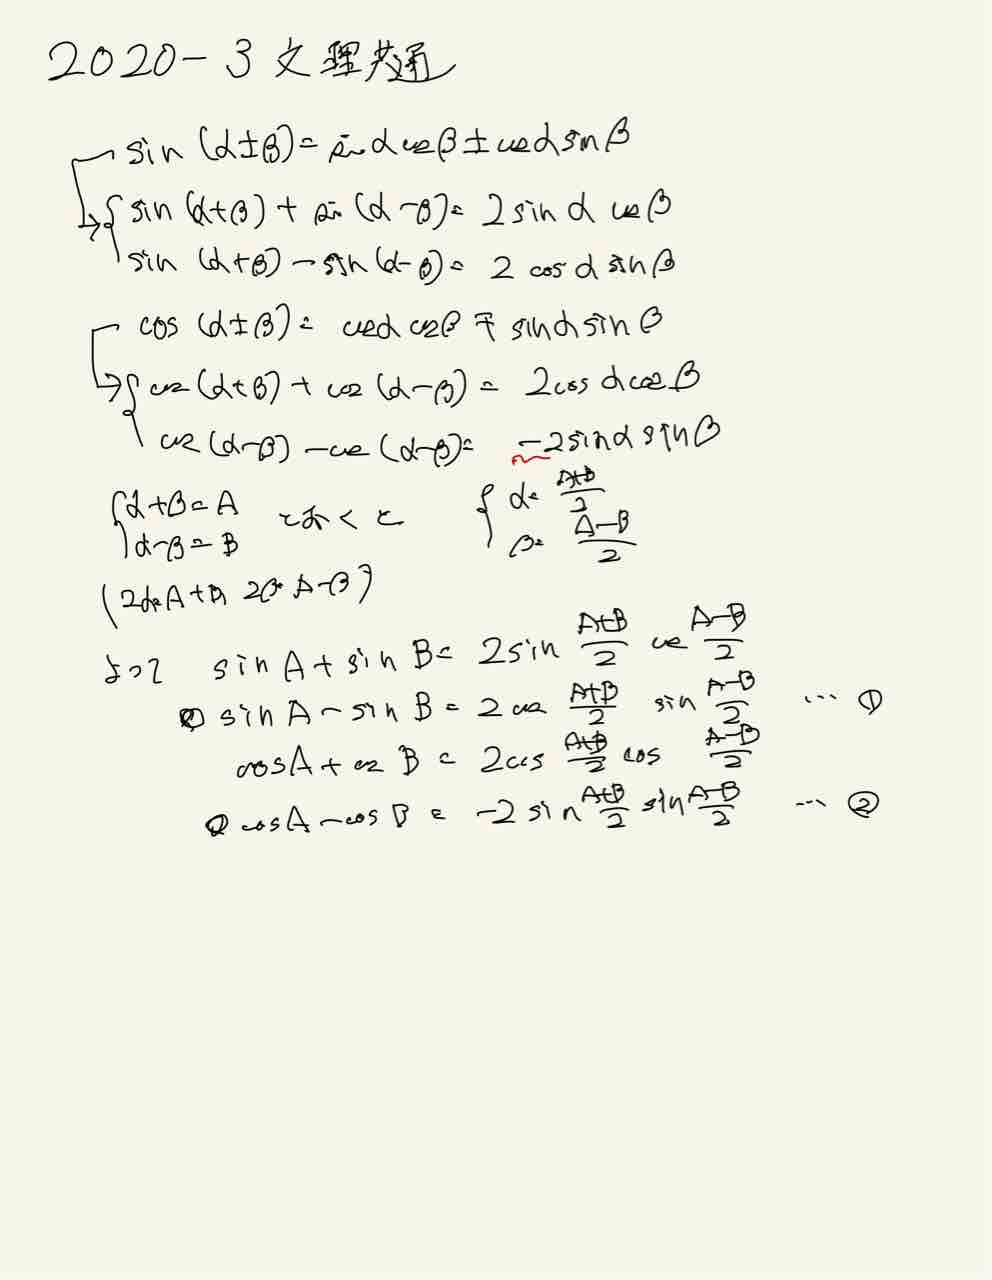 2020-3 文理共通
sin (α±β)= sinαcosβ±cosαsinβ
sin (α+β) + sin (α-β)= 2sinα cosβ
sin (α+β) - sin (α-β)= 2 cosα sinβ
cos (α±β)= cosαcosβ ∓ sinαsinβ
cos (α+β) + cos (α-β) = 2cosαcosβ
cos (α-β) - cos (α-β)= -2sinαsinβ
{α+β=A とおくと { α= A+B/2
α-β=B β= A-B/2
(2α=A+B, 2β=A-B)
よって sinA+sinB= 2sin A+B/2 cos A-B/2
sinA-sinB= 2cos A+B/2 sin A-B/2 … ①
cosA+cosB= 2cos A+B/2 cos A-B/2
cosA-cosB= -2sin A+B/2 sin A-B/2 … ②